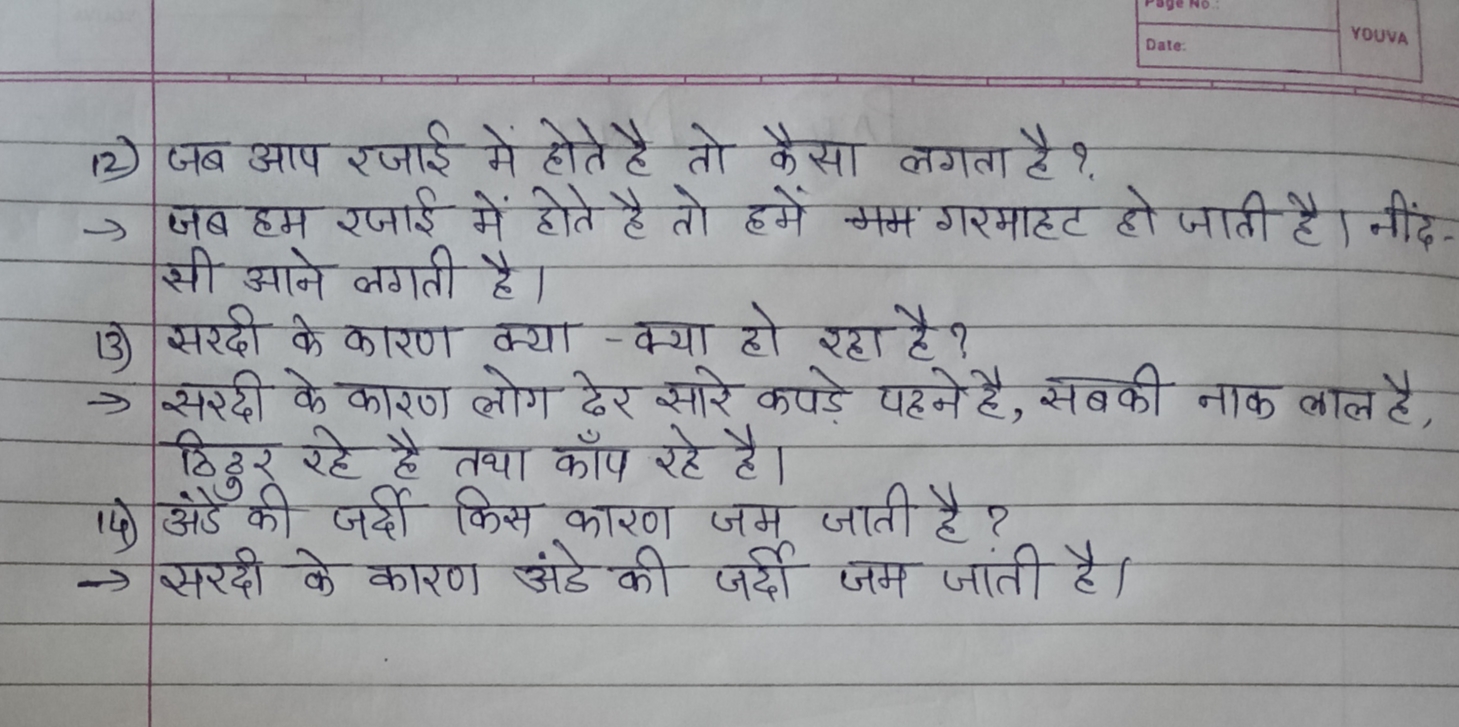 Page No.:
Date:
YOUVA
12) जब आप रजाई में होते है तो कैसा लगता है?
→ जब हम रजाई में होते है तो हमें मम गरमाहट हो जाती है। नींद-
सी आने लगती है।
13) सरदी के कारण क्या - क्या हो रहा है?
→ सरदी के कारण लोग ढेर सारे कपड़े पहने है, सबकी नाक लाल है,
ठिठुर रहे है तथा काँप रहे है।
14) अंडे की जर्दी किस कारण जम जाती है?
→ सरदी के कारण अंडे की जर्दी जम जाती है।